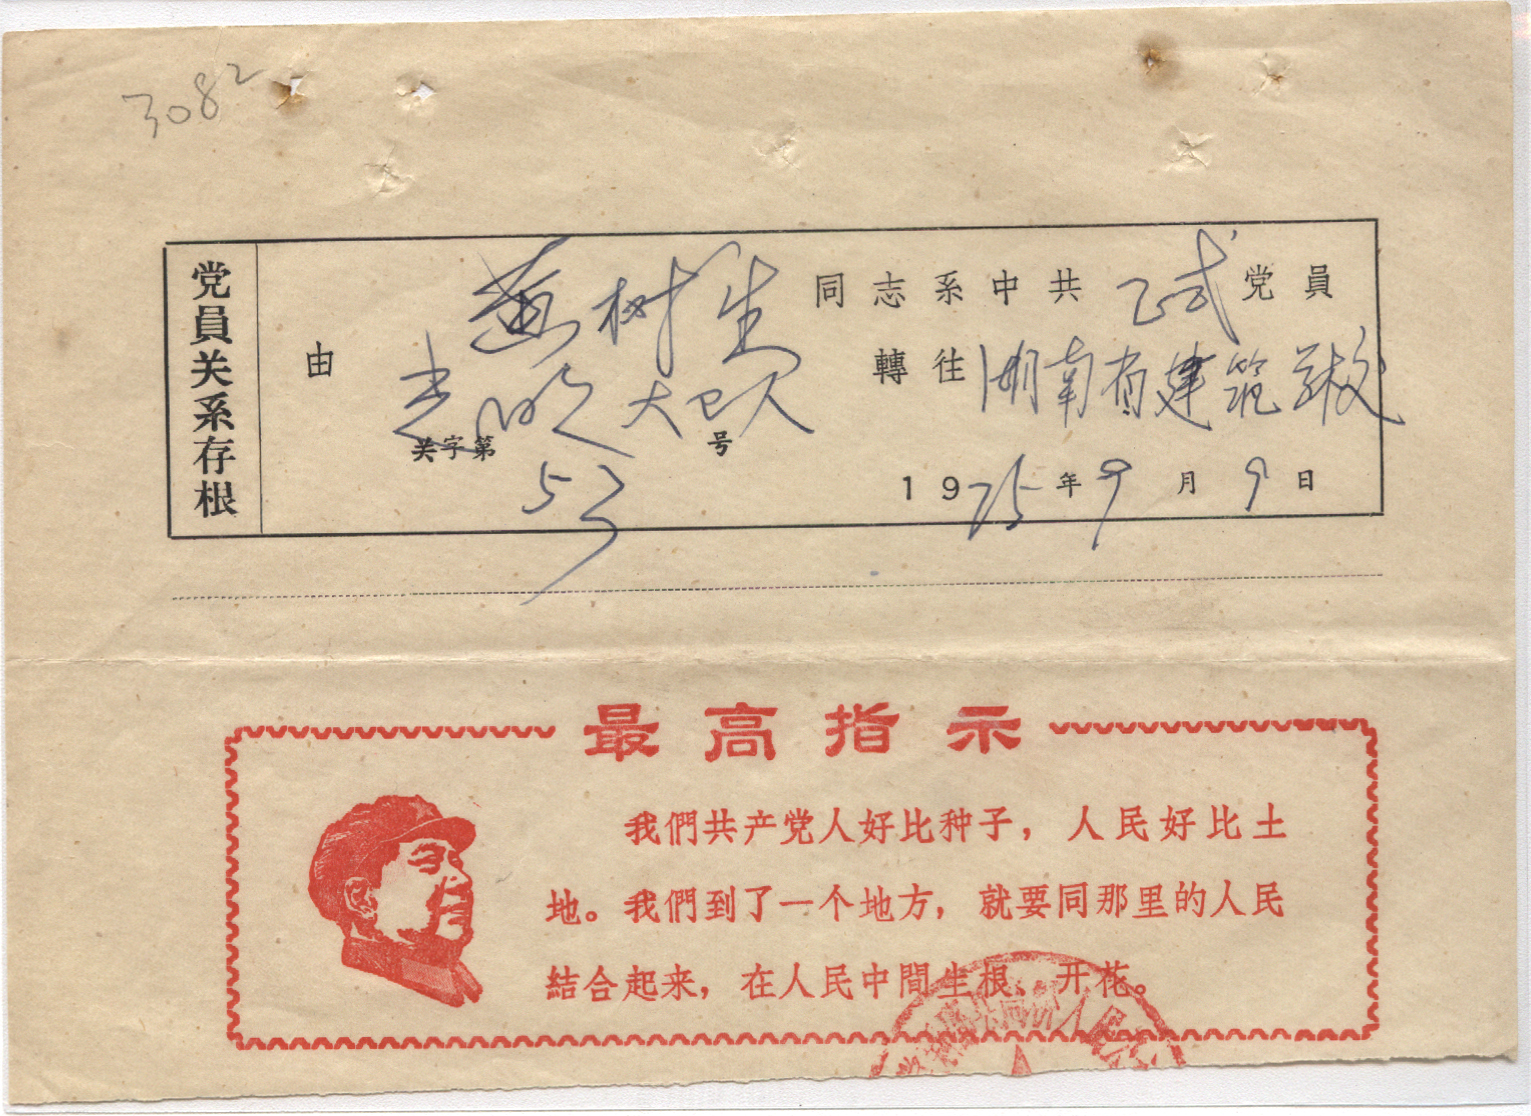 3082
党員关系存根
树生同志系中共正式党員
由 大 轉往湖南省建筑学校
关字第53号
1975年9月9日
最高指示
我們共产党人好比种子，人民好比土
地。我們到了一个地方，就要同那里的人民
結合起来，在人民中間生根、开花。